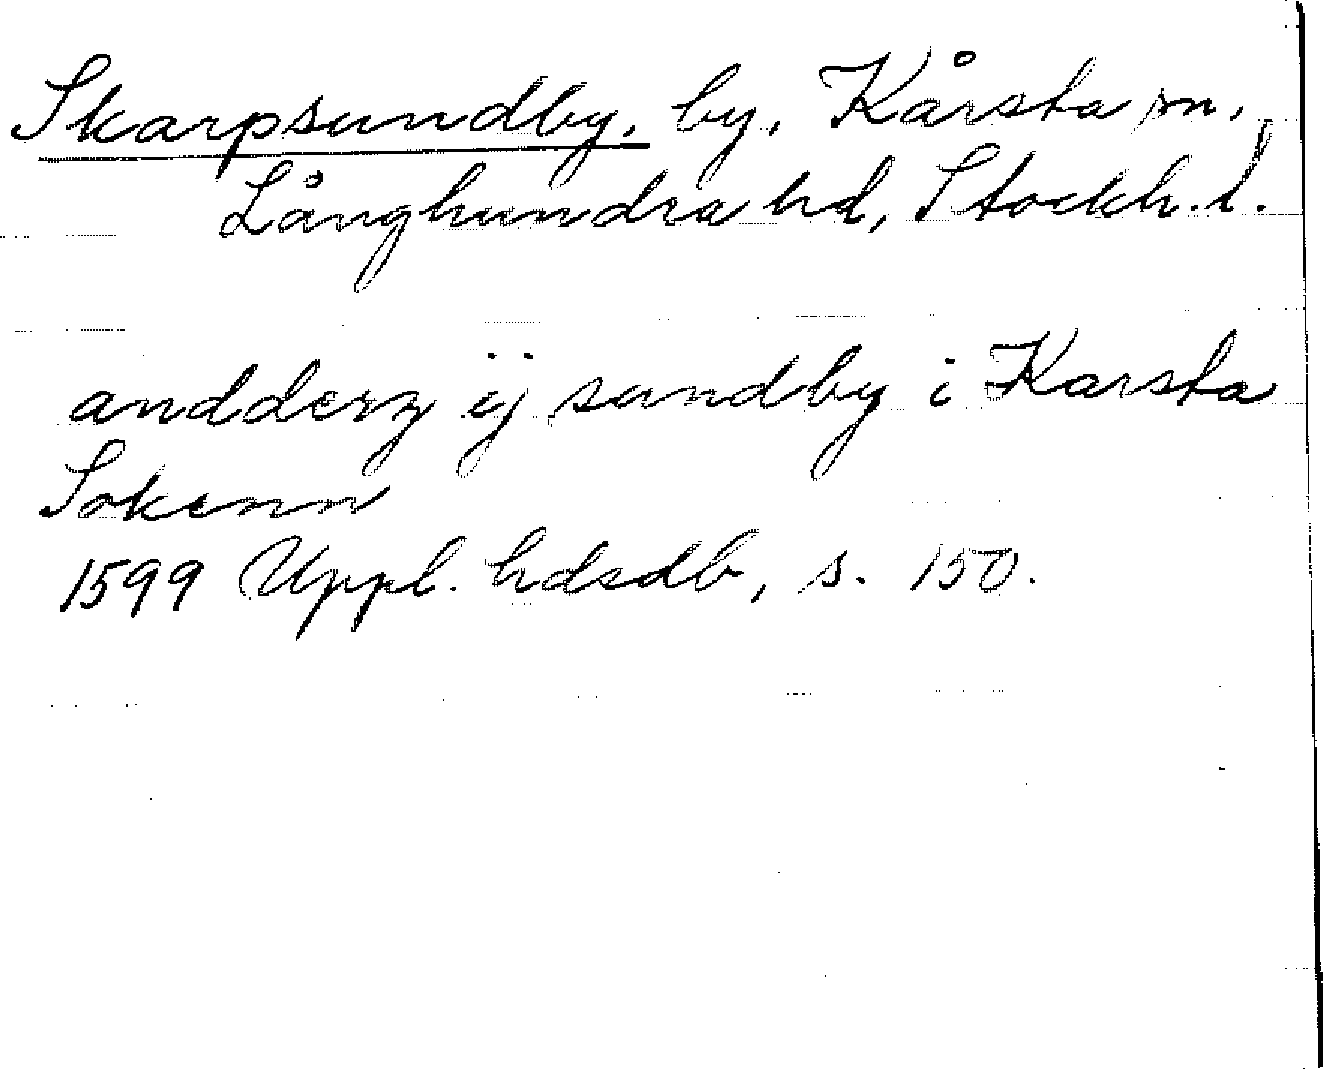 Skarpsundby, by, Kårsta sn,
Långhundra hd, Stockh. l.
andderz ÿ sundby i Karsta
Sokenn
1599 Uppl. hdsdb, s. 150.